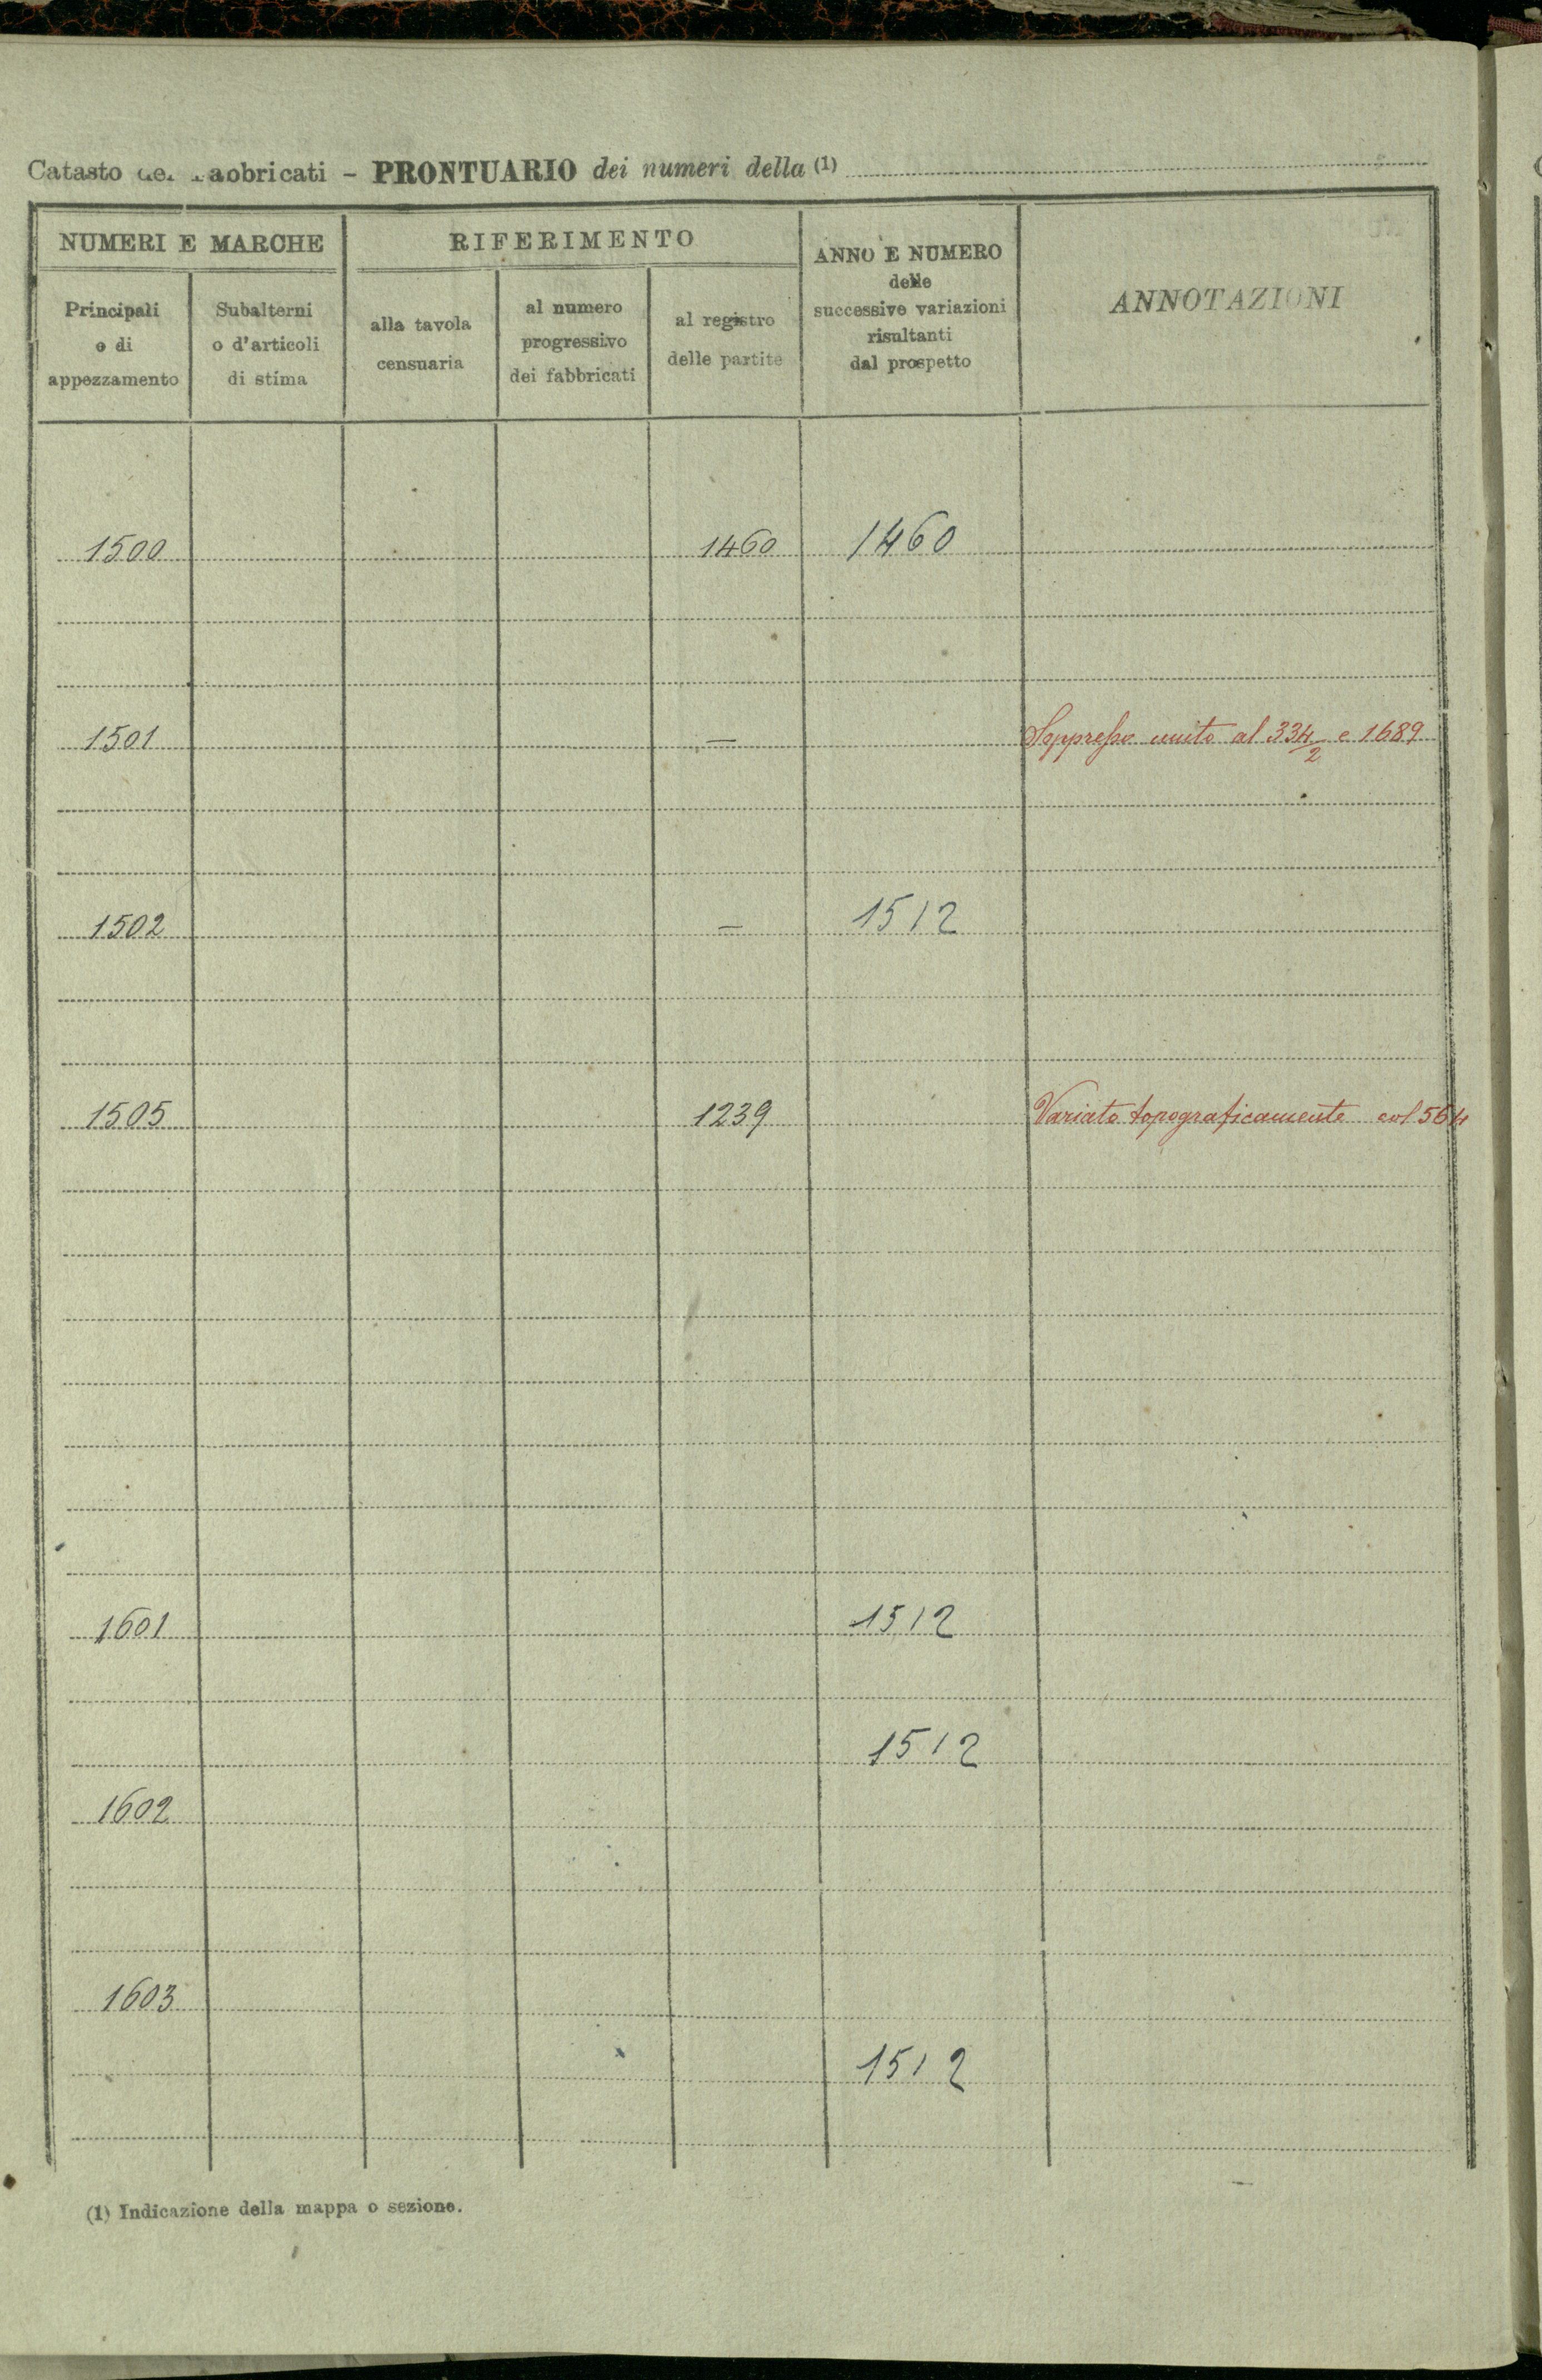 Catasto dei Fabbricati – PRONTUARIO dei numeri della (1)
NUMERI E MARCHE
RIFERIMENTO
ANNO E NUMERO
delle
successive variazioni
risultanti
dal prospetto
ANNOTAZIONI
Principali
e di
appezzamento
Subalterni
o d'articoli
di stima
alla tavola
censuaria
al numero
progressivo
dei fabbricati
al registro
delle partite
1500 1460 1460
1501 — Soppresso unito al 334/2 e 1689
1502 — 1512
1505 1239 Variato topograficamente col 564
1601 1512
1512
1602
1603
1512
(1) Indicazione della mappa o sezione.